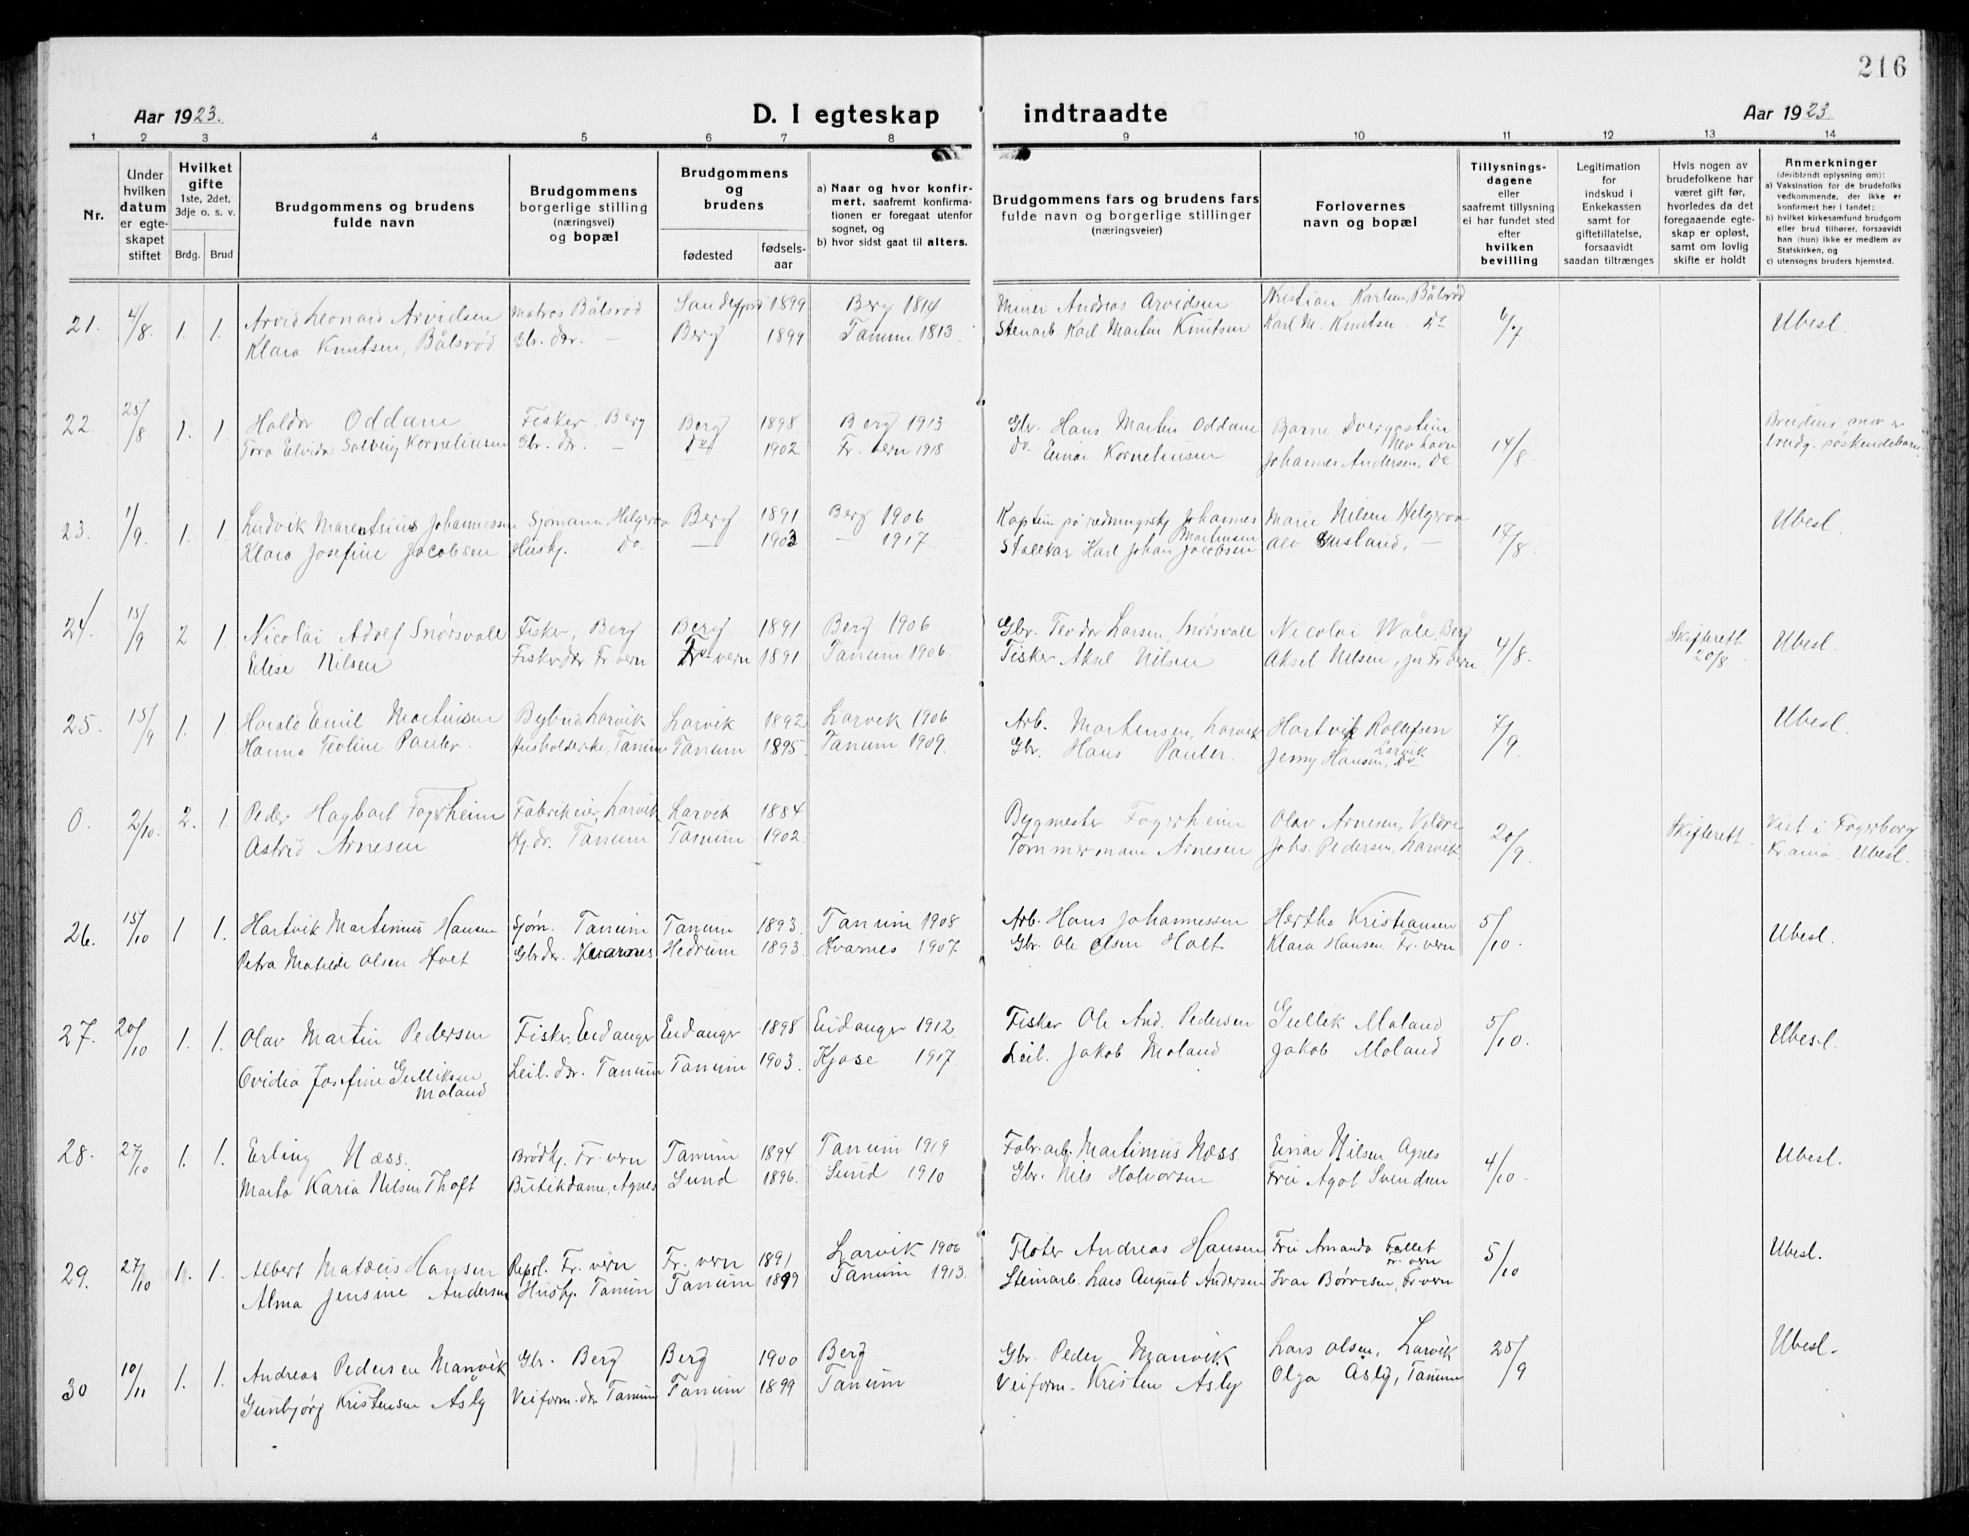 216
Aar 1923.
D. I egteskap indtraadte
Aar 1923
1 2 3 4 5 6 7 8 9 10 11 12 13 14
Nr.
Under hvilken datum er egteskapet stiftet
Hvilket gifte 1ste, 2det, 3dje o. s. v.
Brdg. Brud
Brudgommens og brudens fulde navn
Brudgommens borgerlige stilling (næringsvei) og bopæl
Brudgommens og brudens
fødested
fødselsaar
a) Naar og hvor konfirmert, saafremt konfirmationen er foregaat utenfor sognet, og
b) hvor sidst gaat til alters.
Brudgommens fars og brudens fars fulde navn og borgerlige stillinger (næringsveier)
Forlovernes navn og bopæl
Tillysningsdagene eller saafremt tillysning ei har fundet sted efter hvilken bevilling
Legitimation for indskud i Enkekassen samt for giftetillatelse, forsaavidt saadan tiltrænges
Hvis nogen av brudefolkene har været gift før, hvorledes da det foregaaende egteskap er opløst, samt om lovlig skifte er holdt
Anmerkninger (deriblendt oplysning om):
a) Vaksination for de brudefolks vedkommende, der ikke er konfirmert her i landet;
b) hvilket kirkesamfund brudgom eller brud tilhører, forsaavidt han (hun) ikke er medlem av Statskirken, og
c) utensogns bruders hjemsted.
21. 4/8. 1. 1. Arvid Leonard Arvidsen Matros Bålsrød Sandefjord 1899 Berg 1814 Miner Andreas Arvidsen Kristian Karlsen, Bålsrød 6/7 Ubesl.
Klara Knutsen, Bålsrød Gbr. dtr. — Berg 1899 Tanum 1813. Stenarb Karl Martin Knutsen Karl M. Knutsen - Do
22. 25/8. 1. 1. Haldor Oddane Fisker, Berg Berg 1898 Berg 1913 Gbr. Hans Martin Oddane Bjarne Dvergsten Nevlhavn 14/8 Brudens mor er
Tora Elvida Solveig Korneliussen Gbr. dr. — Do 1902 Fr. vern 1918 Do Einar Korneliussen Johannes Andersen, Do brudg. søskendebarn
23. 1/9. 1. 1. Ludvik Marentsius Johannessen Sjømann, Helgeroa Berg 1891 Berg 1906 Kaptein på redningssk Johannes Martinsen Marie Nilsen Helgeroa 17/8 Ubesl.
Klara Josefine Jacobsen Hushj. do. — 1903 — 1917. Stallkar Karl Johan Jacobsen —
24. 15/9 2 1. Nicolai Adolf Snørsvale Fisker, Berg Berg 1891 Berg 1906 Gbr. Teodor Larsen, Snørsvale Nicolai Wåle, Berg 4/8. Skifterett 20/8 Ubesl.
Elise Nilsen Fisker dtr Fr vern Fr vern 1891 Tanum 1906. Fisker Aksel Nilsen Aksel Nilsen, jr Fr vern
25. 15/9 1. 1. Harald Emil Martinsen Bybud Larvik Larvik 1892 Larvik 1906 Arb. Martinsen, Larvik Hartvik Rolfsen Larvik 7/9. Ubesl.
Hanna Teoline Pauler. Husholderske, Tanum Tanum 1895 Tanum 1909. Gbr. Hans Pauler. Jenny Hansen, Do
0. 2/10. 2. 1. Peder Hagbart Fagerheim Fabrikeier, Larvik Larvik 1884 Bygmester Fagerheim Olav Arnesen, Veldre 20/9. Skifterett. Viet i Fagerborg
Astrid Arnesen Hj. dr. Tanum Tanum 1902. Tømmermann Arnesen Johs. Pedersen, Larvik Kr.ania. Ubesl.
26. 15/10 1 1. Hartvik Martinius Hansen Sjøm. Tanum Tanum 1893. Tanum 1908 Arb. Hans Johannessen Hertha Kristiansen 5/10. Ubesl.
Petra Matilde Olsen Hvet Gbr dtr. Kvarnes Hedrum 1893. Kvarnes 1907. Gbr. Ole Olsen Holt Klara Hansen Fr. vern
27. 20/10 1. 1. Olav Martin Pedersen Fisker, Eidanger Eidanger 1898 Eidanger 1912. Fisker Ole And. Pedersen Gullik Moland 5/10. Ubesl.
Ovidia Josefine Gulliksen Moland Leil. dtr. Tanum Tanum 1903. Kjose 1917. Leil. Jakob Moland Jakob Moland
28. 27/10 1. 1. Erling Næss. Brødhj. Fr. vern Tanum 1894 Tanum 1919 Fabr. arb. Martinius Næss Einar Nilsen Agnes 4/10. Ubesl.
Marta Karia Nilsen Thoft Butikdame, Agnes Sund 1896. Sund 1910 Gbr. Nils Halvorsen Fru Agot Svendsen
29. 27/10 1. 1. Albert Mateus Hansen Repsl. Fr. vern Fr. vern 1891 Larvik 1906 Fløter Andreas Hansen Fru Amanda Fr. vern 5/10 Ubesl.
Alma Jensine Andersen Hushj. Tanum Tanum 1899 Tanum 1913. Steinarb. Lars August Andersen Ivar Børresen, Fr vern
30 10/11 1. 1. Andreas Pedersen Manvik Gbr. Berg Berg 1900 Berg Gbr. Peder Manvik Lars Olsen, Larvik 25/9 Ubesl.
Gunbjørg Kristensen Asly Veiform. dtr Tanum Tanum 1899 Tanum Veiform. Kristen Asly Olga Åsly, Tanum